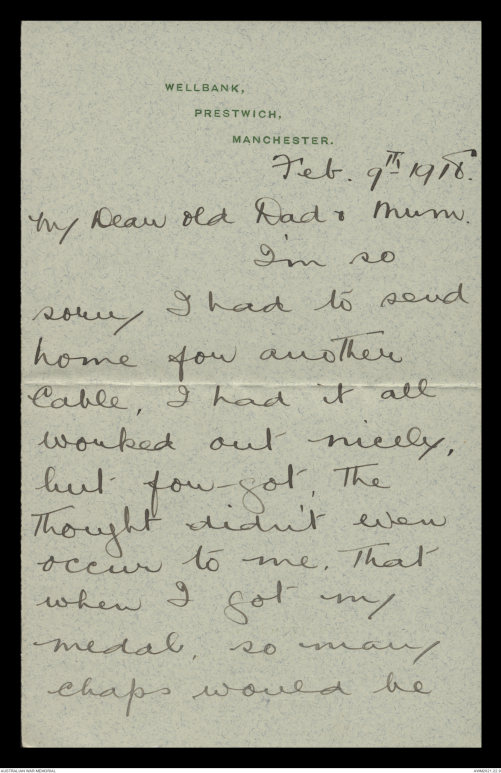 WELLBANK,
PRESTWICH,
MANCHESTER.
Feb. 9th 1918.
My Dear old Dad & Mum.
I'm so
sorry I had to send
home for another
Cable, I had it all
worked out nicely,
but for-got, the
thought didn't even
occur to me, that
when I got my
medal, so many
chaps would be
AUSTRALIAN WAR MEMORIAL